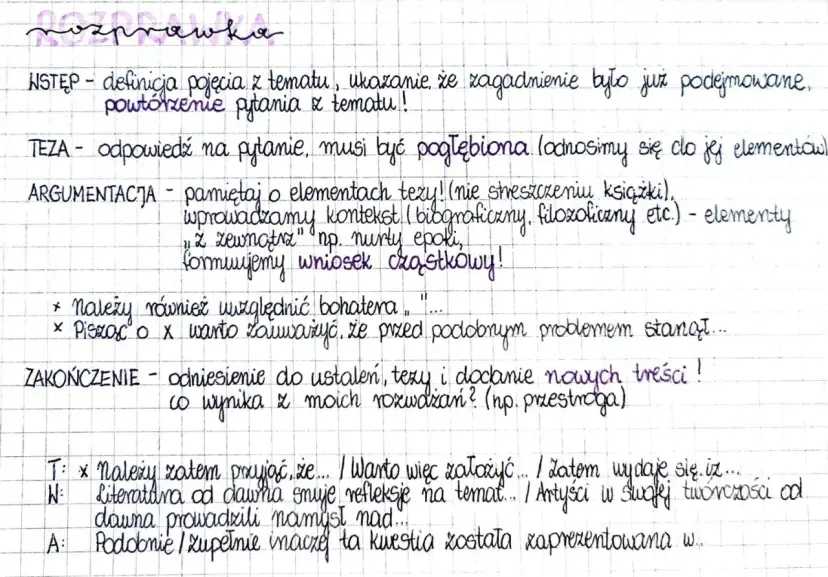 ROZPRAWKA
rozprawka
WSTĘP - definicja pojęcia z tematu, ukazanie, że zagadnienie było już podejmowane,
powtórzenie pytania z tematu!
TEZA - odpowiedź na pytanie, musi być pogłębiona (odnosimy się do jej elementów)
ARGUMENTACJA - pamiętaj o elementach tezy! (nie streszczeniu książki),
wprowadzamy kontekst (biograficzny, filozoficzny etc.) - elementy
„z zewnątrz" np. nurty epoki,
formuujemy wniosek cząstkowy!
* Należy również uwzględnić bohatera „ "...
* Pisząc o x warto zauważyć, że przed podobnym problemem stanął...
ZAKOŃCZENIE - odniesienie do ustaleń, tezy i dodanie nowych treści!
co wynika z moich rozważań? (np. przestroga)
T: x Należy zatem przyjąć, że... / Warto więc założyć... / Zatem wydaje się, iż...
W: Literatura od dawna snuje refleksje na temat... / Artyści w swojej twórczości od
dawna prowadzili namysł nad...
A: Podobnie / zupełnie inaczej ta kwestia została zaprezentowana w...